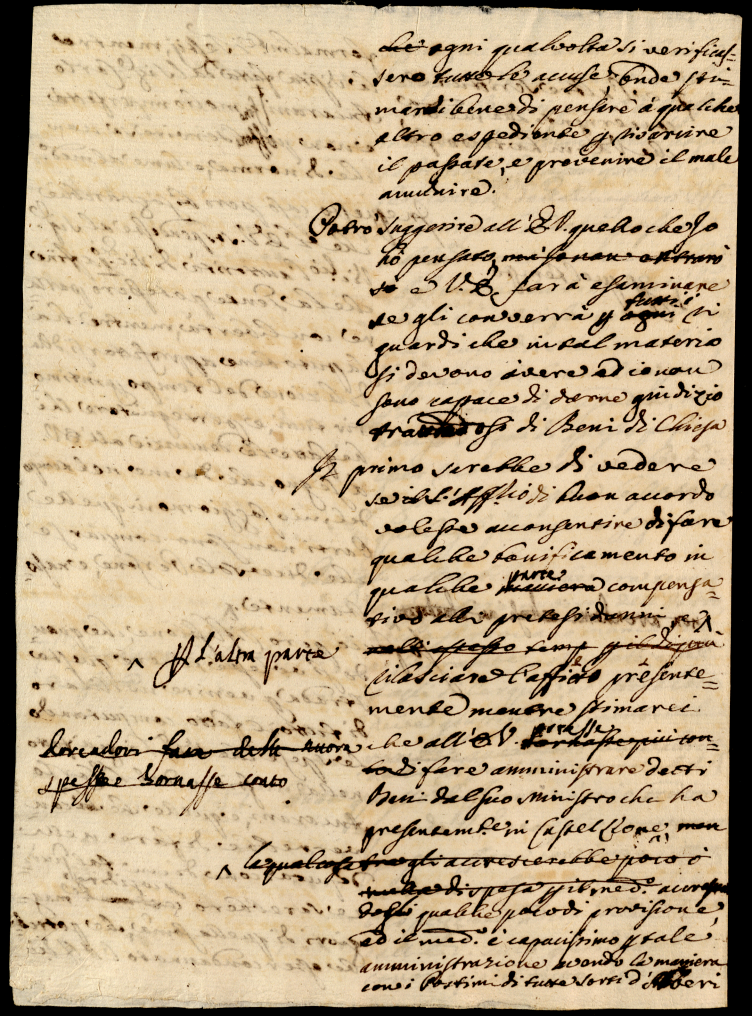 che ogni qualvolta si verificas-
sero tutte le accuse, onde sti-
marei bene di pensare a qualche
altro espediente p
il passato, e provenire il male
avvenire.
Potrò suggerire all'E.V. quello che Io
hò pensato,
e V.E. farà esaminare
se gli converrà p tutti i ri
guardi che in tal materia
si devono avere ed io non
sono capace di darne giudizio
di Beni di Chiesa
Il primo sarebbe di vedere
se di buon accordo
volesse acconsentire di fare
qualche bonificamento in
qualche parte compensa-
tivo alli pretesi danni
p l'altra parte
rilasciare l'affitto presente-
mente mentre stimarei
che all'E.V. tornasse
spesse tornasse conto
di fare amministrare detti
Beni dal suo Ministro che ha
presentemente in Castel Leone
la qual cosa gli accrescerebbe poco ò
di spesa p il med.
qualche poco di provisione,
ed il med. è capacissimo p tale
amministrazione avendo la maniera
con i Postimi di tutte sorti d'Alberi